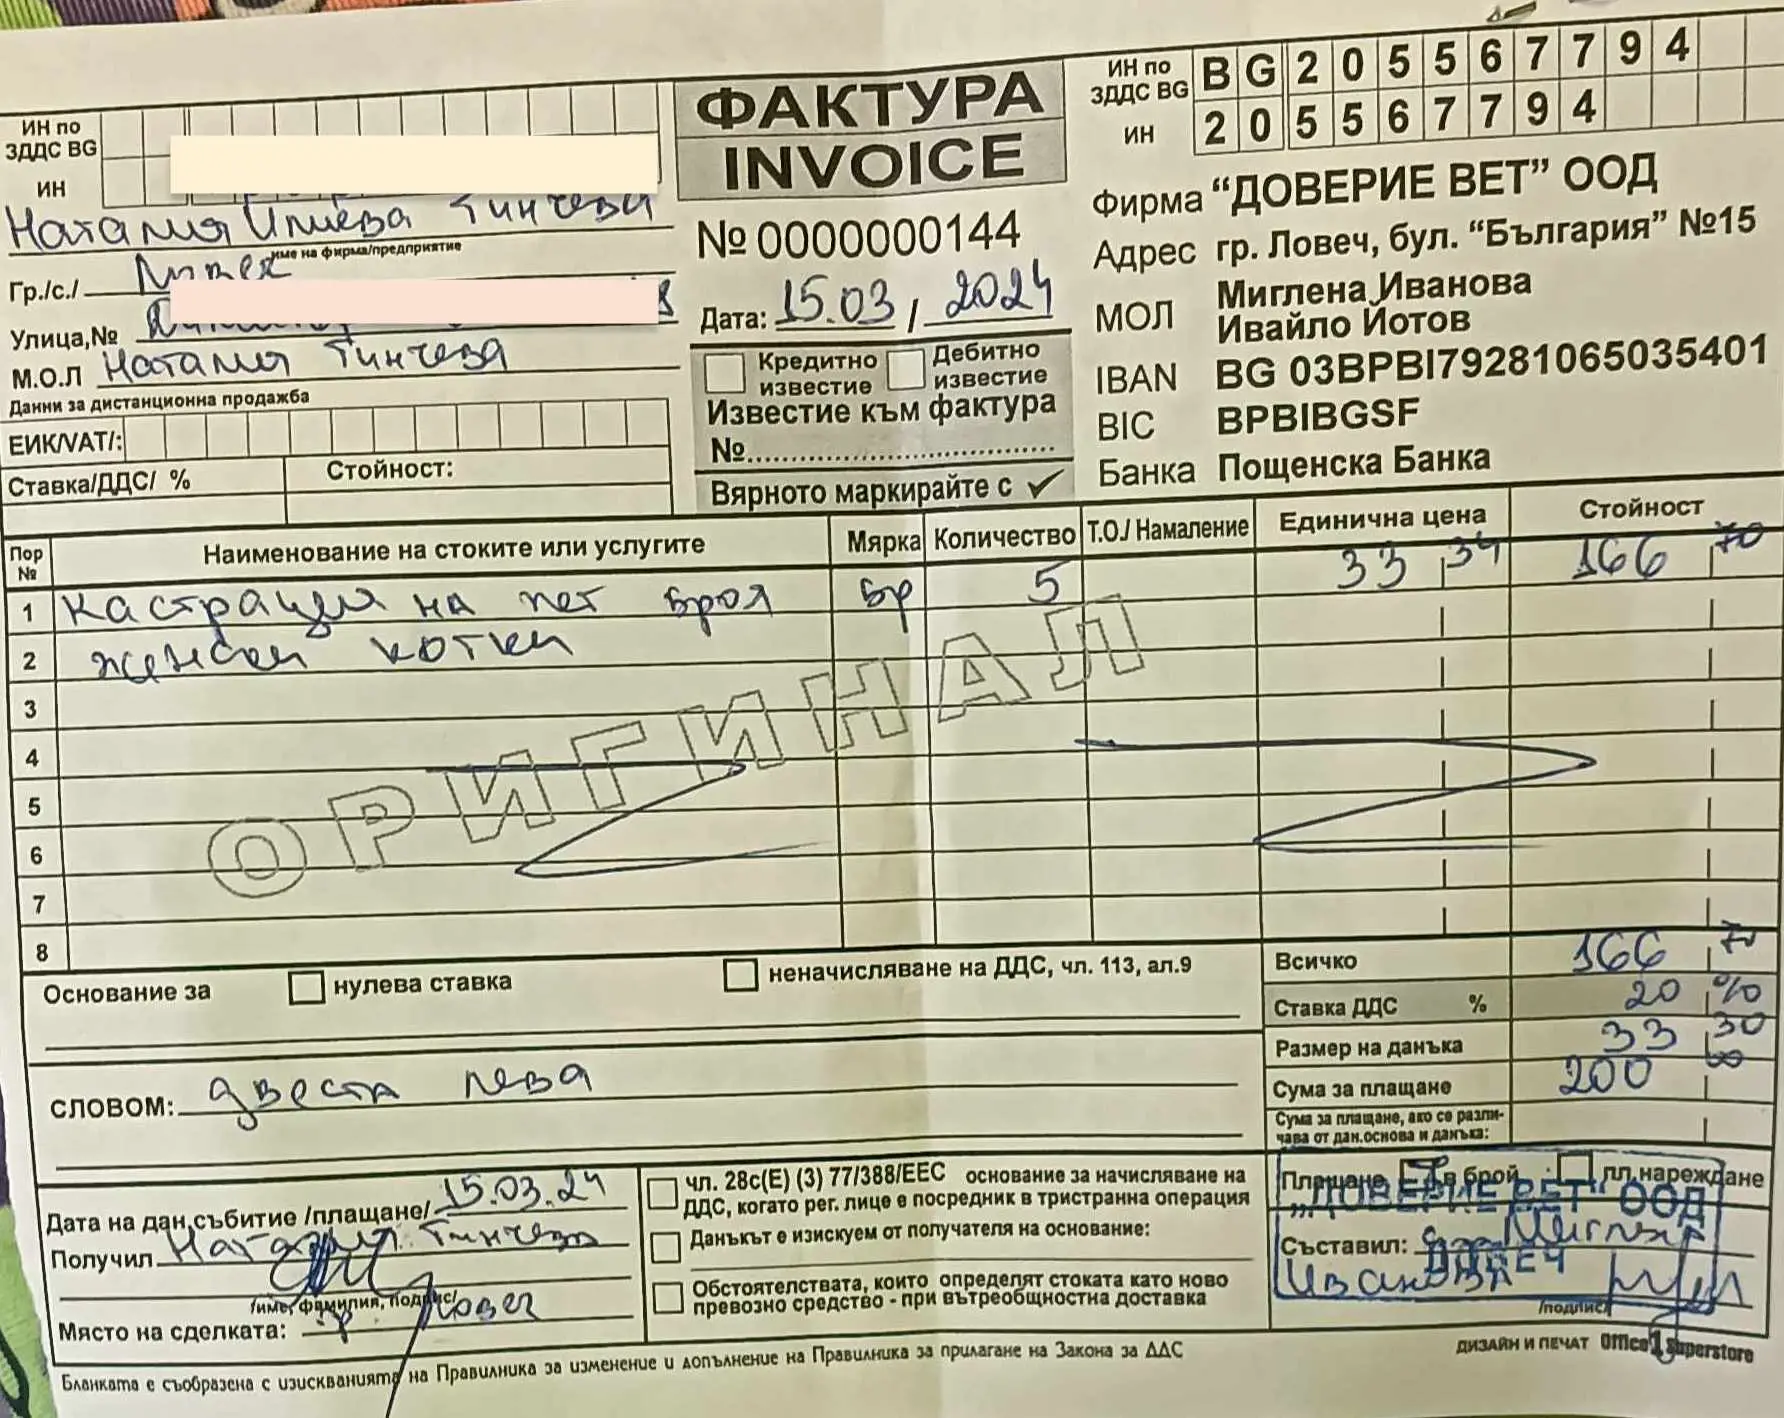 ИН по
ЗДДС BG
ИН
Наталия Илиева Тинчева
име на фирма/предприятие
Гр./с./
Улица,№
М.О.Л Наталия Тинчева
Данни за дистанционна продажба
ЕИК/VAT/:
Ставка/ДДС/ % Стойност:
ФАКТУРА
INVOICE
№ 0000000144
Дата: 15.03 / 2024
Кредитно известие
Дебитно известие
Известие към фактура
№
Вярното маркирайте с ✓
ИН по ЗДДС BG BG205567794
ИН 205567794
Фирма "ДОВЕРИЕ ВЕТ" ООД
Адрес гр. Ловеч, бул. "България" №15
МОЛ Миглена Иванова
Ивайло Йотов
IBAN BG 03BPBI79281065035401
BIC BPBIBGSF
Банка Пощенска Банка
Пор № Наименование на стоките или услугите Мярка Количество Т.О./ Намаление Единична цена Стойност
1 кастрации на пет броя бр 5 33 34 166 70
2 женски котки
3
4
5
6
7
8
ОРИГИНАЛ
Основание за нулева ставка неначисляване на ДДС, чл. 113, ал.9
Всичко 166 70
Ставка ДДС % 20 %
Размер на данъка 33 30
Сума за плащане 200 00
Сума за плащане, ако се разли-
чава от дан.основа и данъка:
СЛОВОМ: двеста лева
Дата на дан.събитие /плащане/ 15.03.24
Получил Наталия Тинчева
/име, фамилия, подпис/
Място на сделката: гр. Ловеч
чл. 28с(Е) (3) 77/388/ЕЕС основание за начисляване на
ДДС, когато рег. лице е посредник в тристранна операция
Данъкът е изискуем от получателя на основание:
Обстоятелствата, които определят стоката като ново
превозно средство - при вътреобщностна доставка
Плащане в брой пл.нареждане
"ДОВЕРИЕ ВЕТ" ООД
ЛОВЕЧ
Съставил: д-р Миглена
Иванова
/подпис/
Бланката е съобразена с изискванията на Правилника за изменение и допълнение на Правилника за прилагане на Закона за ДДС
ДИЗАЙН И ПЕЧАТ Office 1 Superstore